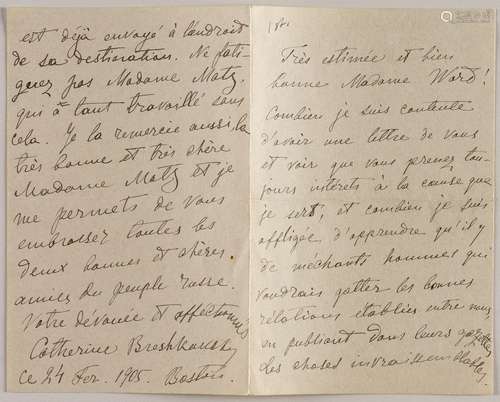 Très estimée et bien
bonne Madame Ward!
Combien je suis contente
d'avoir une lettre de vous
et voir que vous prenez tou-
jours intérêts à la cause que
je sert, et combien je suis
affligée d'apprendre qu'il y
de méchants hommes qui
voudrais gâtter les bonnes
relations établies entre nous
en publiant dans leurs gazettes
des choses invraissemblables
est déjà envoyé à l'androit
de sa destination. Ne fati-
guez pas Madame Matz,
qui a tant travaillé sans
cela. Je la remercie aussi, la
très bonne et très chère
Madame Matz et je
me permets de vous
embrasser toutes les
deux bonnes et chères
amies du peuple russe.
Votre dévouée et affectionnée
Catherine Breshkovsky
ce 24 Fev. 1905. Boston.